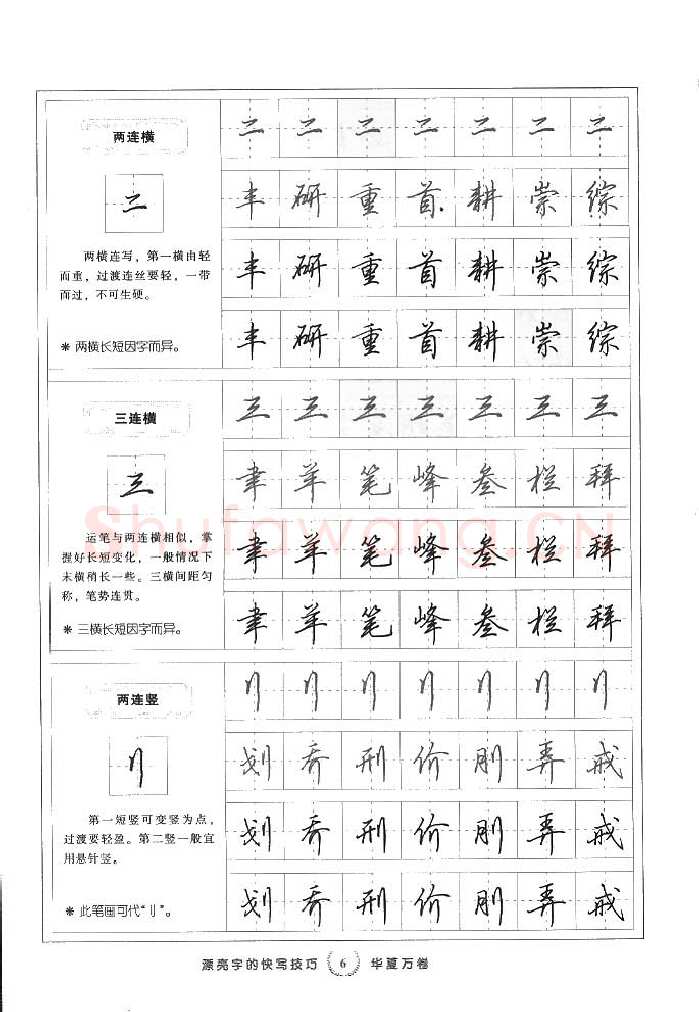 两连横
二 二 二 二 二 二 二
二
丰 研 重 首 耕 崇 综
两横连写，第一横由轻
而重，过渡连丝要轻，一带
而过，不可生硬。
丰 研 重 首 耕 崇 综
＊两横长短因字而异。
丰 研 重 首 耕 崇 综
三连横
三 三 三 三 三 三 三
三
聿 羊 笔 峰 叁 栏 拜
Shufawang.CN
运笔与两连横相似，掌
握好长短变化，一般情况下
末横稍长一些。三横间距匀
称，笔势连贯。
聿 羊 笔 峰 叁 栏 拜
＊三横长短因字而异。
聿 羊 笔 峰 叁 栏 拜
两连竖
刂 刂 刂 刂 刂 刂 刂
刂
划 乔 刑 价 刚 弄 戒
第一短竖可变竖为点，
过渡要轻盈。第二竖一般宜
用悬针竖。
划 乔 刑 价 刚 弄 戒
＊此笔画可代“刂”。
划 乔 刑 价 刚 弄 戒
漂亮字的快写技巧 6 华夏万卷